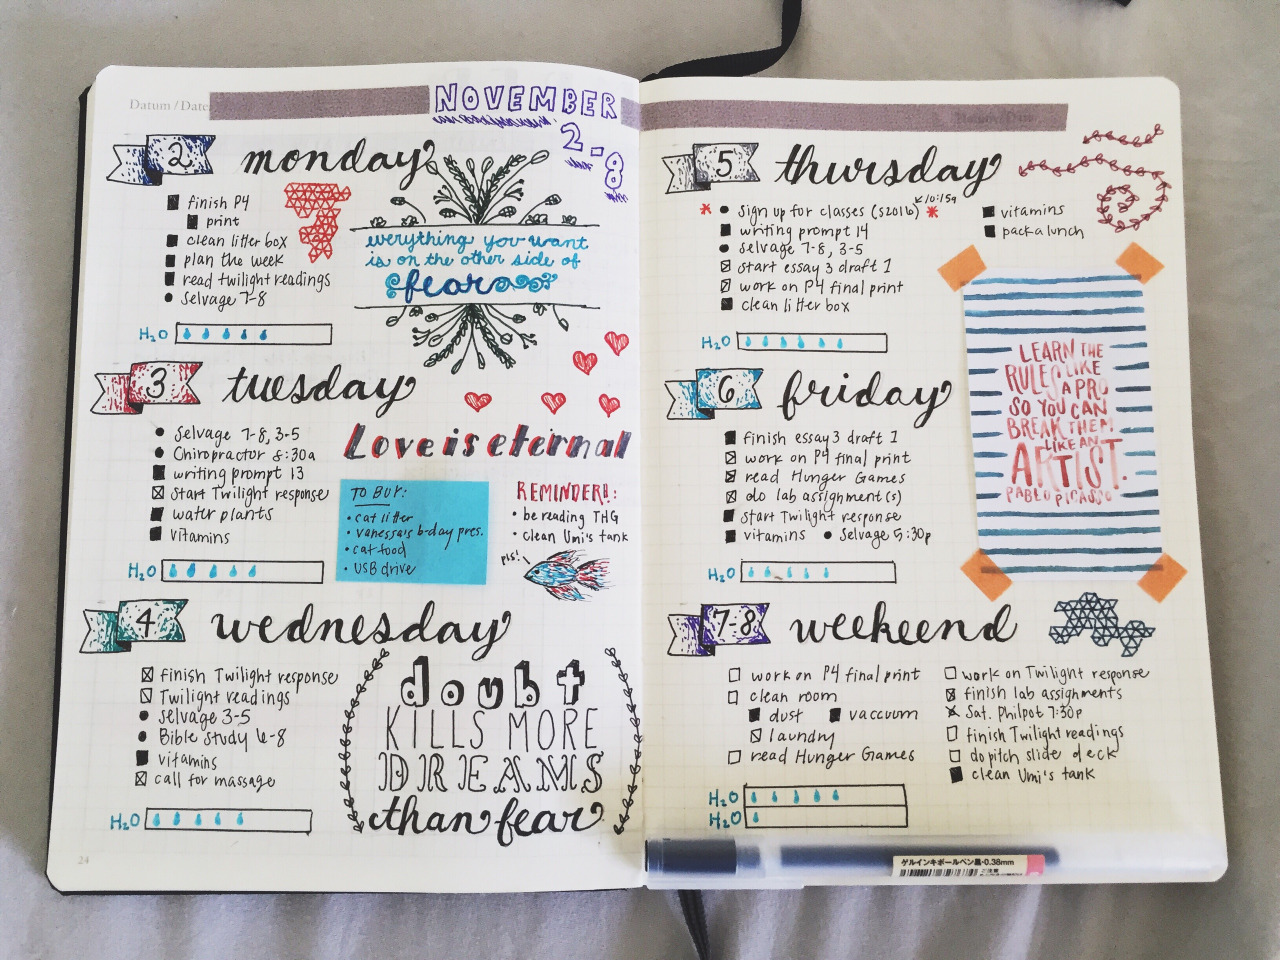 Datum/Date:
NOVEMBER
2-8
2
monday
finish P4
print
clean litter box
plan the week
read twilight readings
Selvage 7-8
H2O
everything you want
is on the other side of
fear
3
tuesday
Selvage 7-8, 3-5
Chiropractor 8:30a
writing prompt 13
start Twilight response
water plants
vitamins
H2O
Love is eternal
TO BUY:
• cat litter
• vanessa's b-day pres.
• cat food
• USB drive
REMINDER!:
• be reading THG
• clean Umi's tank
pls!
4
wednesday
finish Twilight response
Twilight readings
Selvage 3-5
Bible Study 6-8
vitamins
call for massage
H2O
doubt
KILLS MORE
DREAMS
than fear
24
5
thursday
10:15a
* Sign up for classes (S2016) *
writing prompt 14
Selvage 7-8, 3-5
start essay 3 draft 1
work on P4 final print
clean litter box
vitamins
pack a lunch
H2O
6
friday
finish essay 3 draft 1
work on P4 final print
read Hunger Games
do lab assignment(s)
start Twilight response
vitamins • Selvage 5:30p
H2O
LEARN THE
RULES LIKE
A PRO
SO YOU CAN
BREAK THEM
LIKE AN
ARTIST.
PABLO PICASSO
7-8
weekend
work on P4 final print
clean room
dust vaccuum
laundry
read Hunger Games
work on Twilight response
finish lab assignments
Sat. Philpot 7:30p
finish Twilight readings
do pitch slide deck
clean Umi's tank
H2O
H2O
ゲルインキボールペン黒・0.38mm